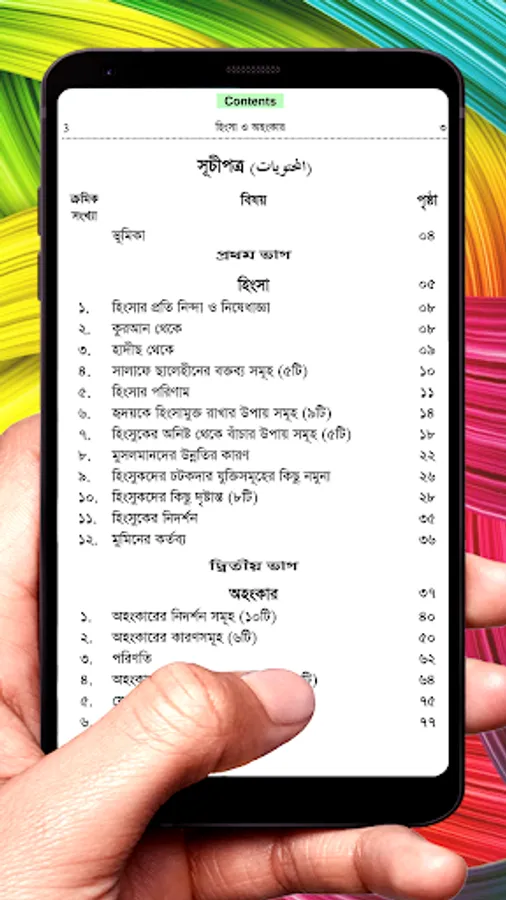 Contents
3 হিংসা ও অহংকার ৩
সূচীপত্র (المحتويات)
ক্রমিক সংখ্যা বিষয় পৃষ্ঠা
ভূমিকা ০৪
প্রথম ভাগ
হিংসা ০৫
১. হিংসার প্রতি নিন্দা ও নিষেধাজ্ঞা ০৮
২. কুরআন থেকে ০৮
৩. হাদীছ থেকে ০৯
৪. সালাফে ছালেহীনের বক্তব্য সমূহ (৫টি) ১০
৫. হিংসার পরিণাম ১১
৬. হৃদয়কে হিংসামুক্ত রাখার উপায় সমূহ (৯টি) ১৪
৭. হিংসুকের অনিষ্ট থেকে বাঁচার উপায় সমূহ (৫টি) ১৮
৮. মুসলমানদের উন্নতির কারণ ২২
৯. হিংসুকদের চটকদার যুক্তিসমূহের কিছু নমুনা ২৬
১০. হিংসুকদের কিছু দৃষ্টান্ত (৮টি) ২৮
১১. হিংসুকের নিদর্শন ৩৫
১২. মুমিনের কর্তব্য ৩৬
দ্বিতীয় ভাগ
অহংকার ৩৭
১. অহংকারের নিদর্শন সমূহ (১০টি) ৪০
২. অহংকারের কারণসমূহ (৬টি) ৫০
৩. পরিণতি ৬২
৪. ৬৪
৫. ৭৫
৬. ৭৭